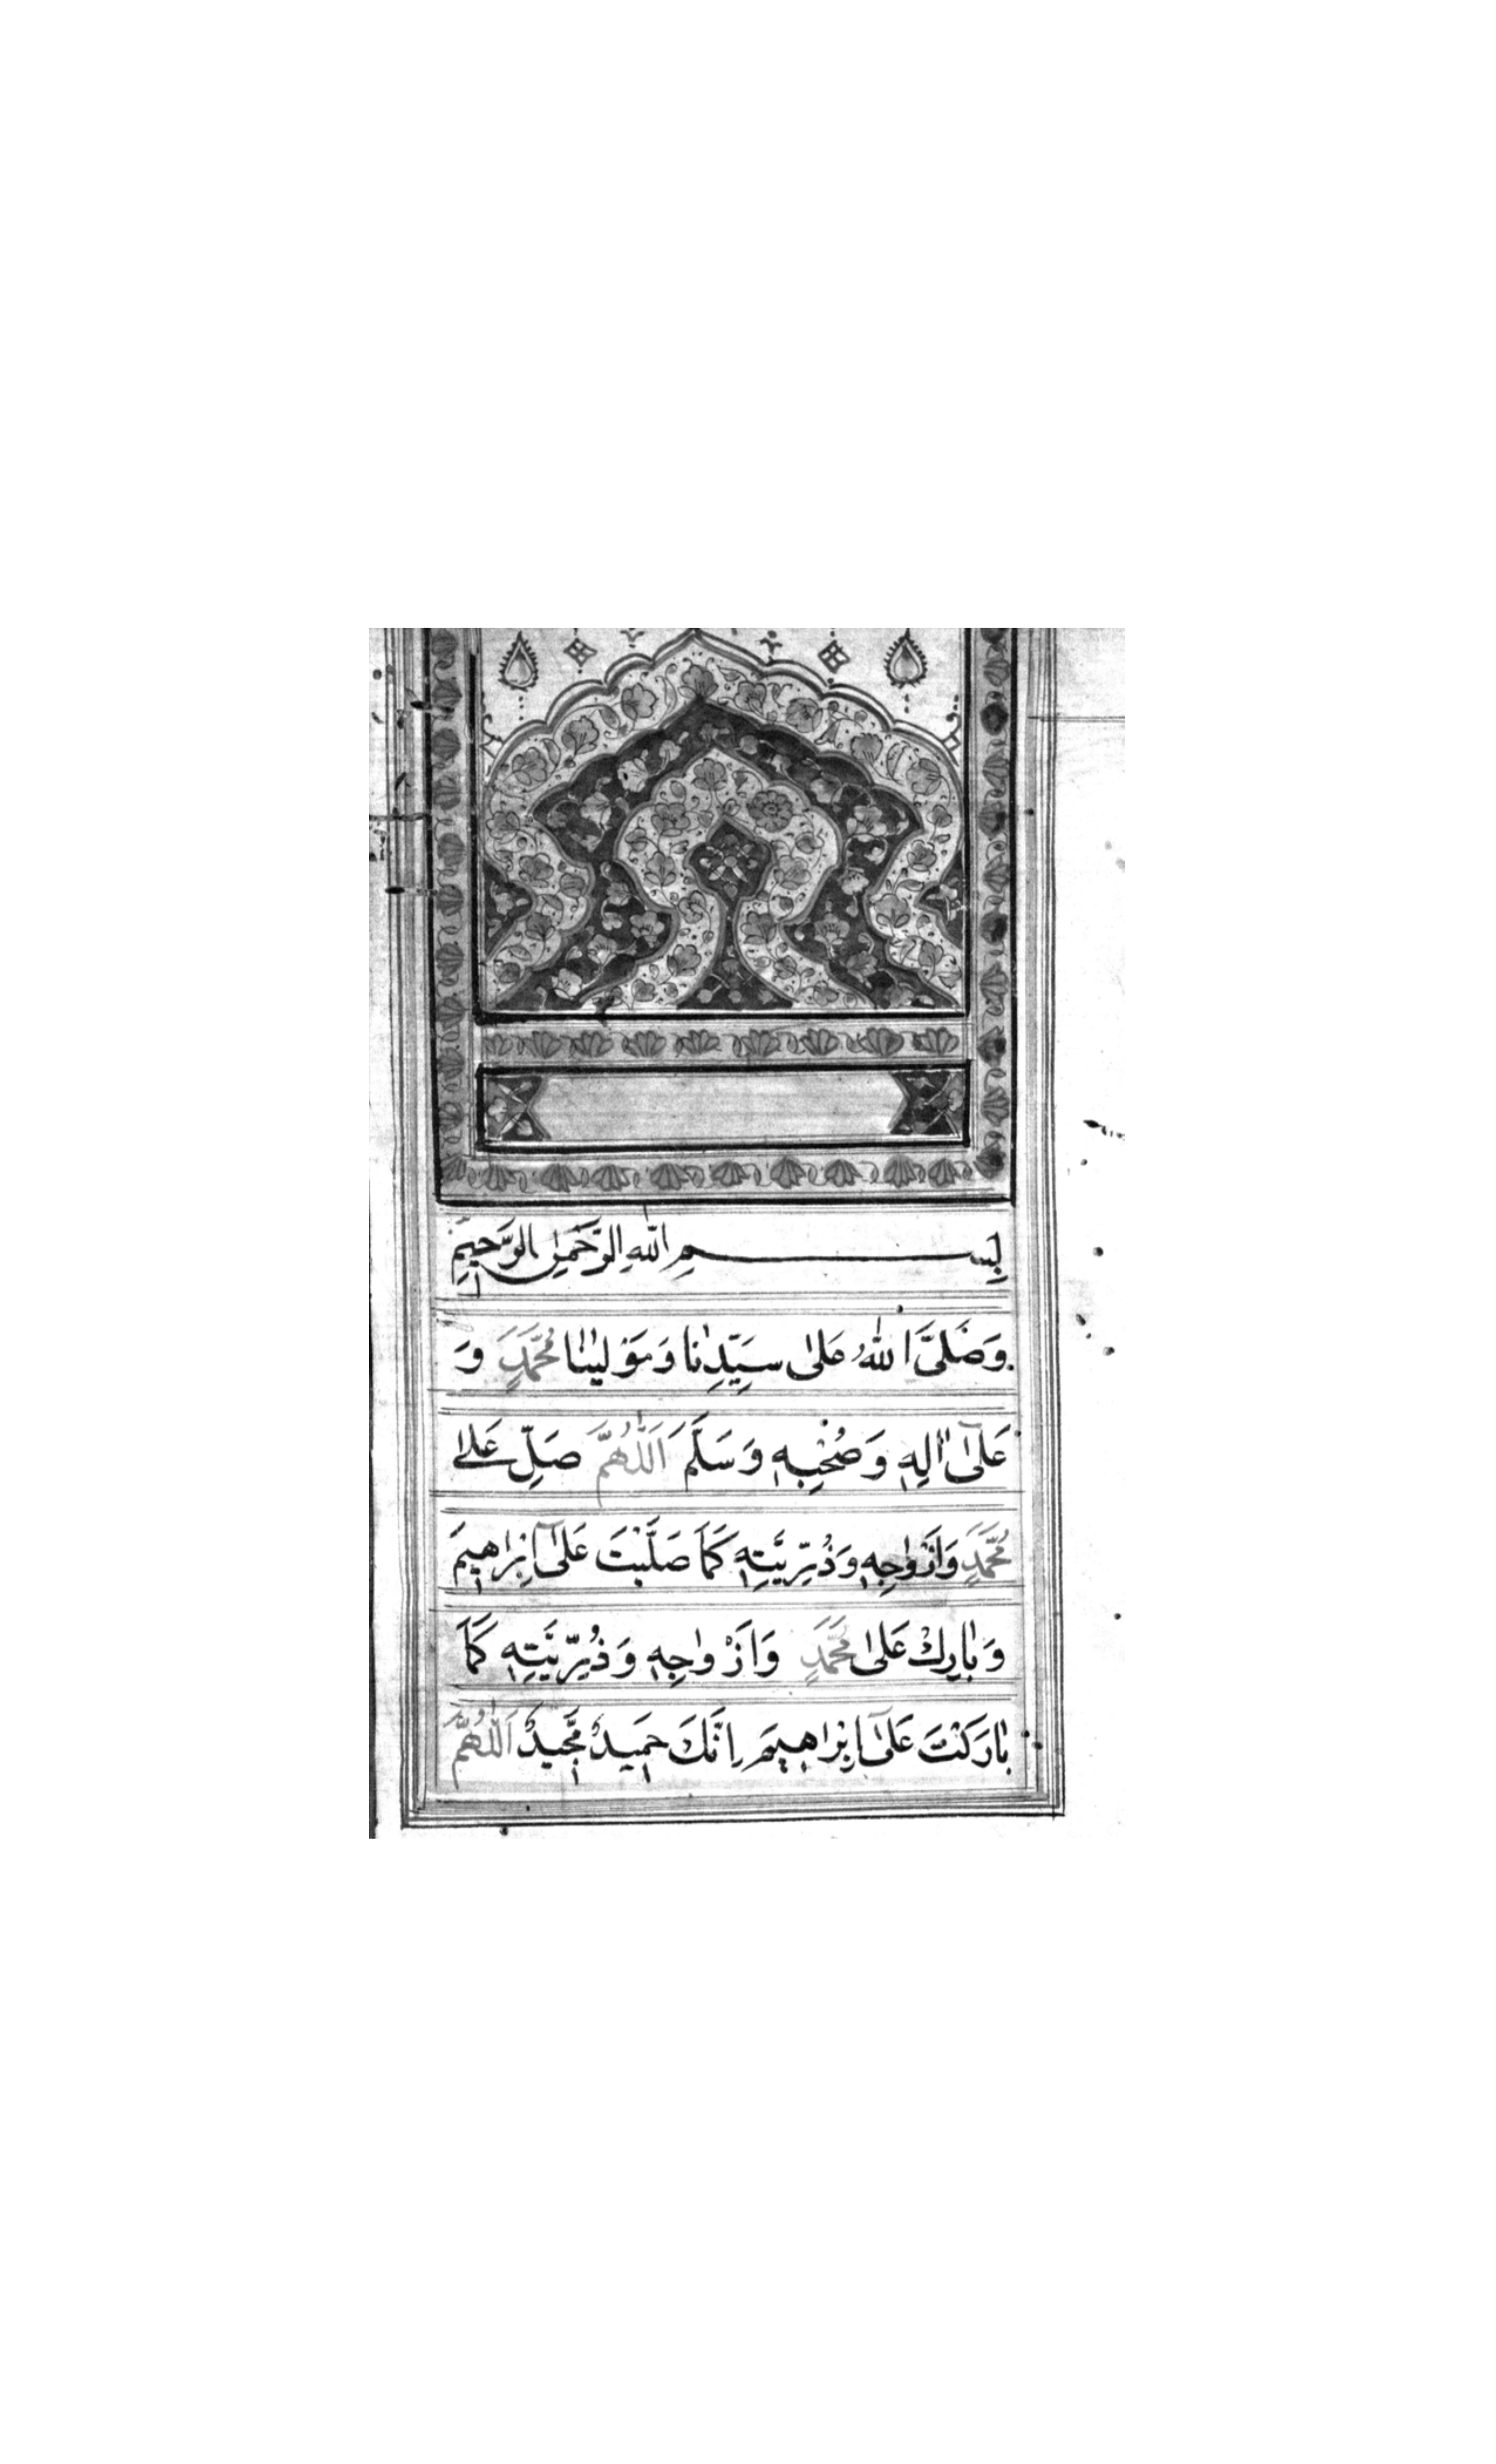 بِسْمِ اللهِ الرَّحْمٰنِ الرَّحِيْمِ
وَصَلَّى اللهُ عَلٰى سَيِّدِنَا وَمَوْلٰينَا مُحَمَّدٍ وَ
عَلٰٓى اٰلِهٖ وَصَحْبِهٖ وَسَلَّمَ اَللّٰهُمَّ صَلِّ عَلٰى
مُحَمَّدٍ وَاَزْوٰجِهٖ وَذُرِّيَّتِهٖ كَمَا صَلَّيْتَ عَلٰٓى اِبْرٰهِيْمَ
وَبٰارِكْ عَلٰى مُحَمَّدٍ وَاَزْوٰجِهٖ وَذُرِّيَّتِهٖ كَمَا
بٰارَكْتَ عَلٰٓى اِبْرٰهِيْمَ اِنَّكَ حَمِيْدٌ مَّجِيْدٌ اَللّٰهُمَّ